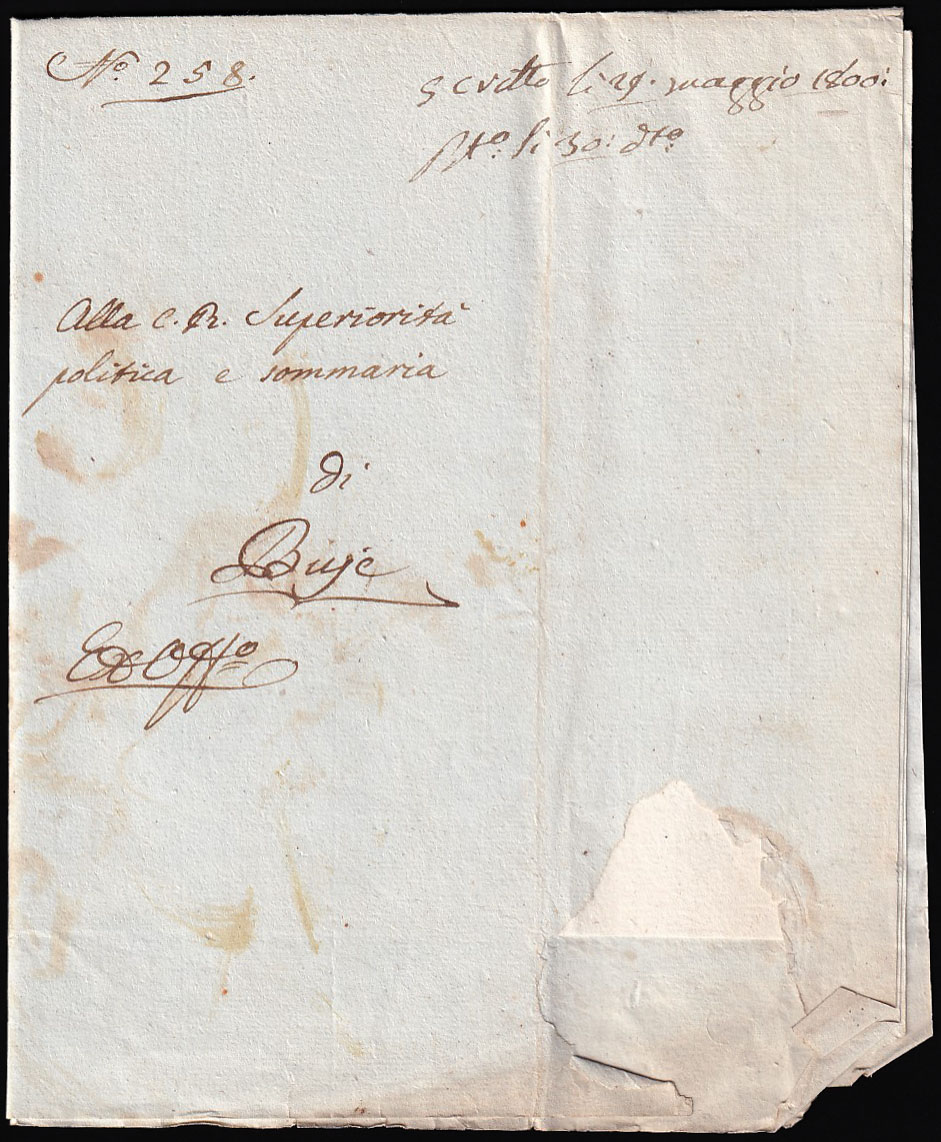 No. 258.
scritto li 29. maggio 1800:
Pto. li 30: dto.
Alla C. R. Superiorità
politica e sommaria
di
Buje
Ex Offo